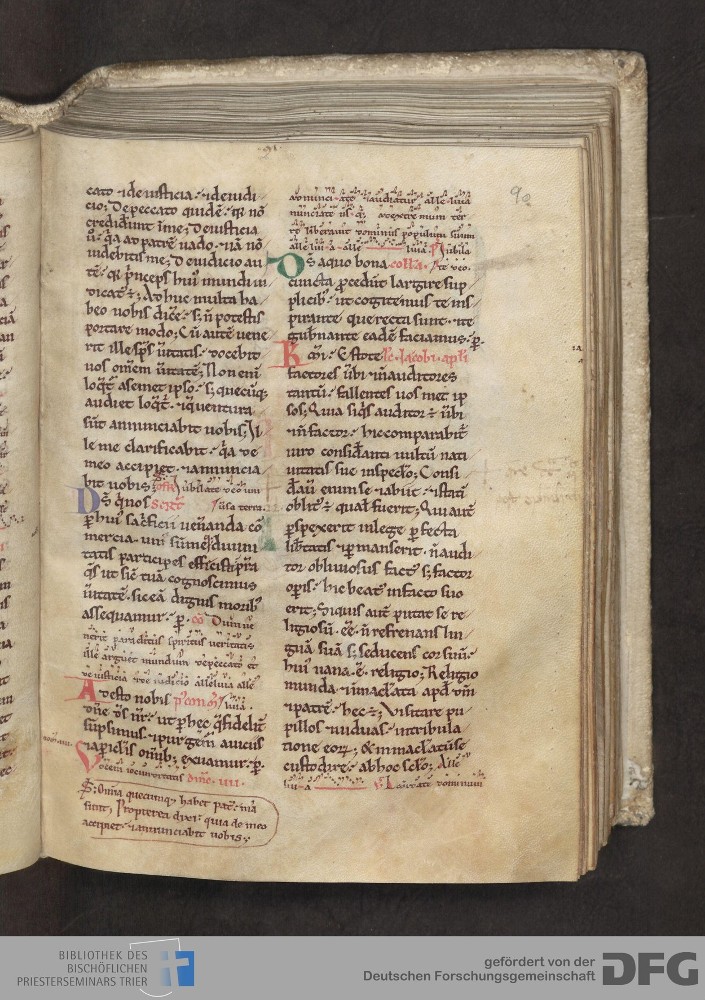 91
92
cato · ⁊ de iusticia · ⁊ de iudi
cio; De peccato quidẽ · qr nõ
crediderunt in me; De iusticia
ũ · qa ad patrẽ uado · ⁊ iã nõ
uidebitis me; De iudicio au
tẽ · qr p̃nceps hui mundi iu
dicatꝰ ẽ; Adhuc multa ha
beo uobis dicẽ · s; ñ potestis
portare modo; Cũ autẽ uene
rit ille sp̃s ũitatis · docebit
uos omẽm ũitatẽ; Non eni
loqt̃ a semet ipso · s; quecũq;
audiet loqt̃ · ⁊ q uentura
sũt annunciabit uobis; Il
le me clarificabit · qa de
meo accipiet · ⁊ annuncia
bit uobis; off Iubilate deo uni
Ds qnos Secrt̃ uersa terra
p hui sacficii ueñanda cõ
mercia · uni sũme diuini
tatis participes effecisti · p̃ta
qs ut sic̃ tuã cognoscimus
ũitatẽ · sic eã dignis morib
assequamur · p · cõ Dum ue
nerit paraclitus spiritus ueritatis
ille arguet mundum de peccato et
de iusticia et de iudicio alleluia alle
Adesto nobis p̃ comõ luia
dñe ds nr̃ · ut p hec q fidelit̃
sũpsimus · ⁊ purgem̃ a uiciis
⁊ a piclis om̃ib; exuamur · p
Vocem iocunditatis Dñic · IIII ·
Om̃ia quecumq; habet pat̃ · mea
sunt; Propterea dixi · quia de meo
accipiet · ⁊ annunciabit uobis;
adnunciate ⁊ audiatur alleluia
nunciate usq; ad extremum ter
re liberauit dominus populum suum
alleluia alle luia ps Iubila
Ds a quo bona collã te deo
cuncta pcedũt largire sup
plicib · ut cogitemus te ins
pirante que recta sunt · ⁊ te
gubñante eadẽ faciamus · p
Kmi · Estote lc̃ Iacobi apłi
factores ũbi ⁊ ñ auditores
tantũ · fallentes uosmet ip
sos; Quia siqs auditor ẽ ũbi
⁊ ñ factor · hic comparabit̃
uiro considãnti uultũ nati
uitatis sue in speclo; Consi
dãu enim se ⁊ abiit · ⁊ statĩ
oblitꝰ ẽ qual fuerit; Qui autẽ
pspexerit in lege pfecta
libtatis ⁊ pmanserit · ñ audi
tor obliuiosus factꝰ s; factor
opis · hic beatꝰ in facto suo
erit; Siquis autẽ putat se re
ligiosũ ẽẽ · ñ refrenans lin
guã suã s; seducens cor suũ ·
huiꝰ uana ẽ religio; Religio
munda ⁊ inmaclata apd dm̃
⁊ patrẽ · hec ẽ; Visitare pu
pillos ⁊ uiduas in tribula
tione eoꝝ · & inmaclatũ se
custodire ab hoc sclo; Alle
luia Laudate dominum
BIBLIOTHEK DES
BISCHÖFLICHEN
PRIESTERSEMINARS TRIER
gefördert von der
Deutschen Forschungsgemeinschaft
DFG